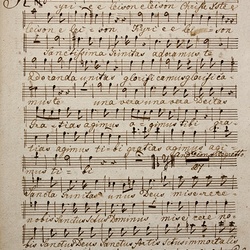 yri=e e leison eleison Christe
eleison e lei=son Kyri=e e lei=
son Sanctissima Trinitas adoramus te
Adoranda unitas glorificamus glorifica
mus te una vera una Deitas
gra=tias agimus a gimus tibi gra=
tias agimus ti=bi gratias agimus agi=
mus ti=bi
Sancta Trinitas unus Deus mise=rere
nobis Sanctus Deus Dominus mise rere no=
bis Sanctus Deus Sanctus fortis Sanctus immortalis